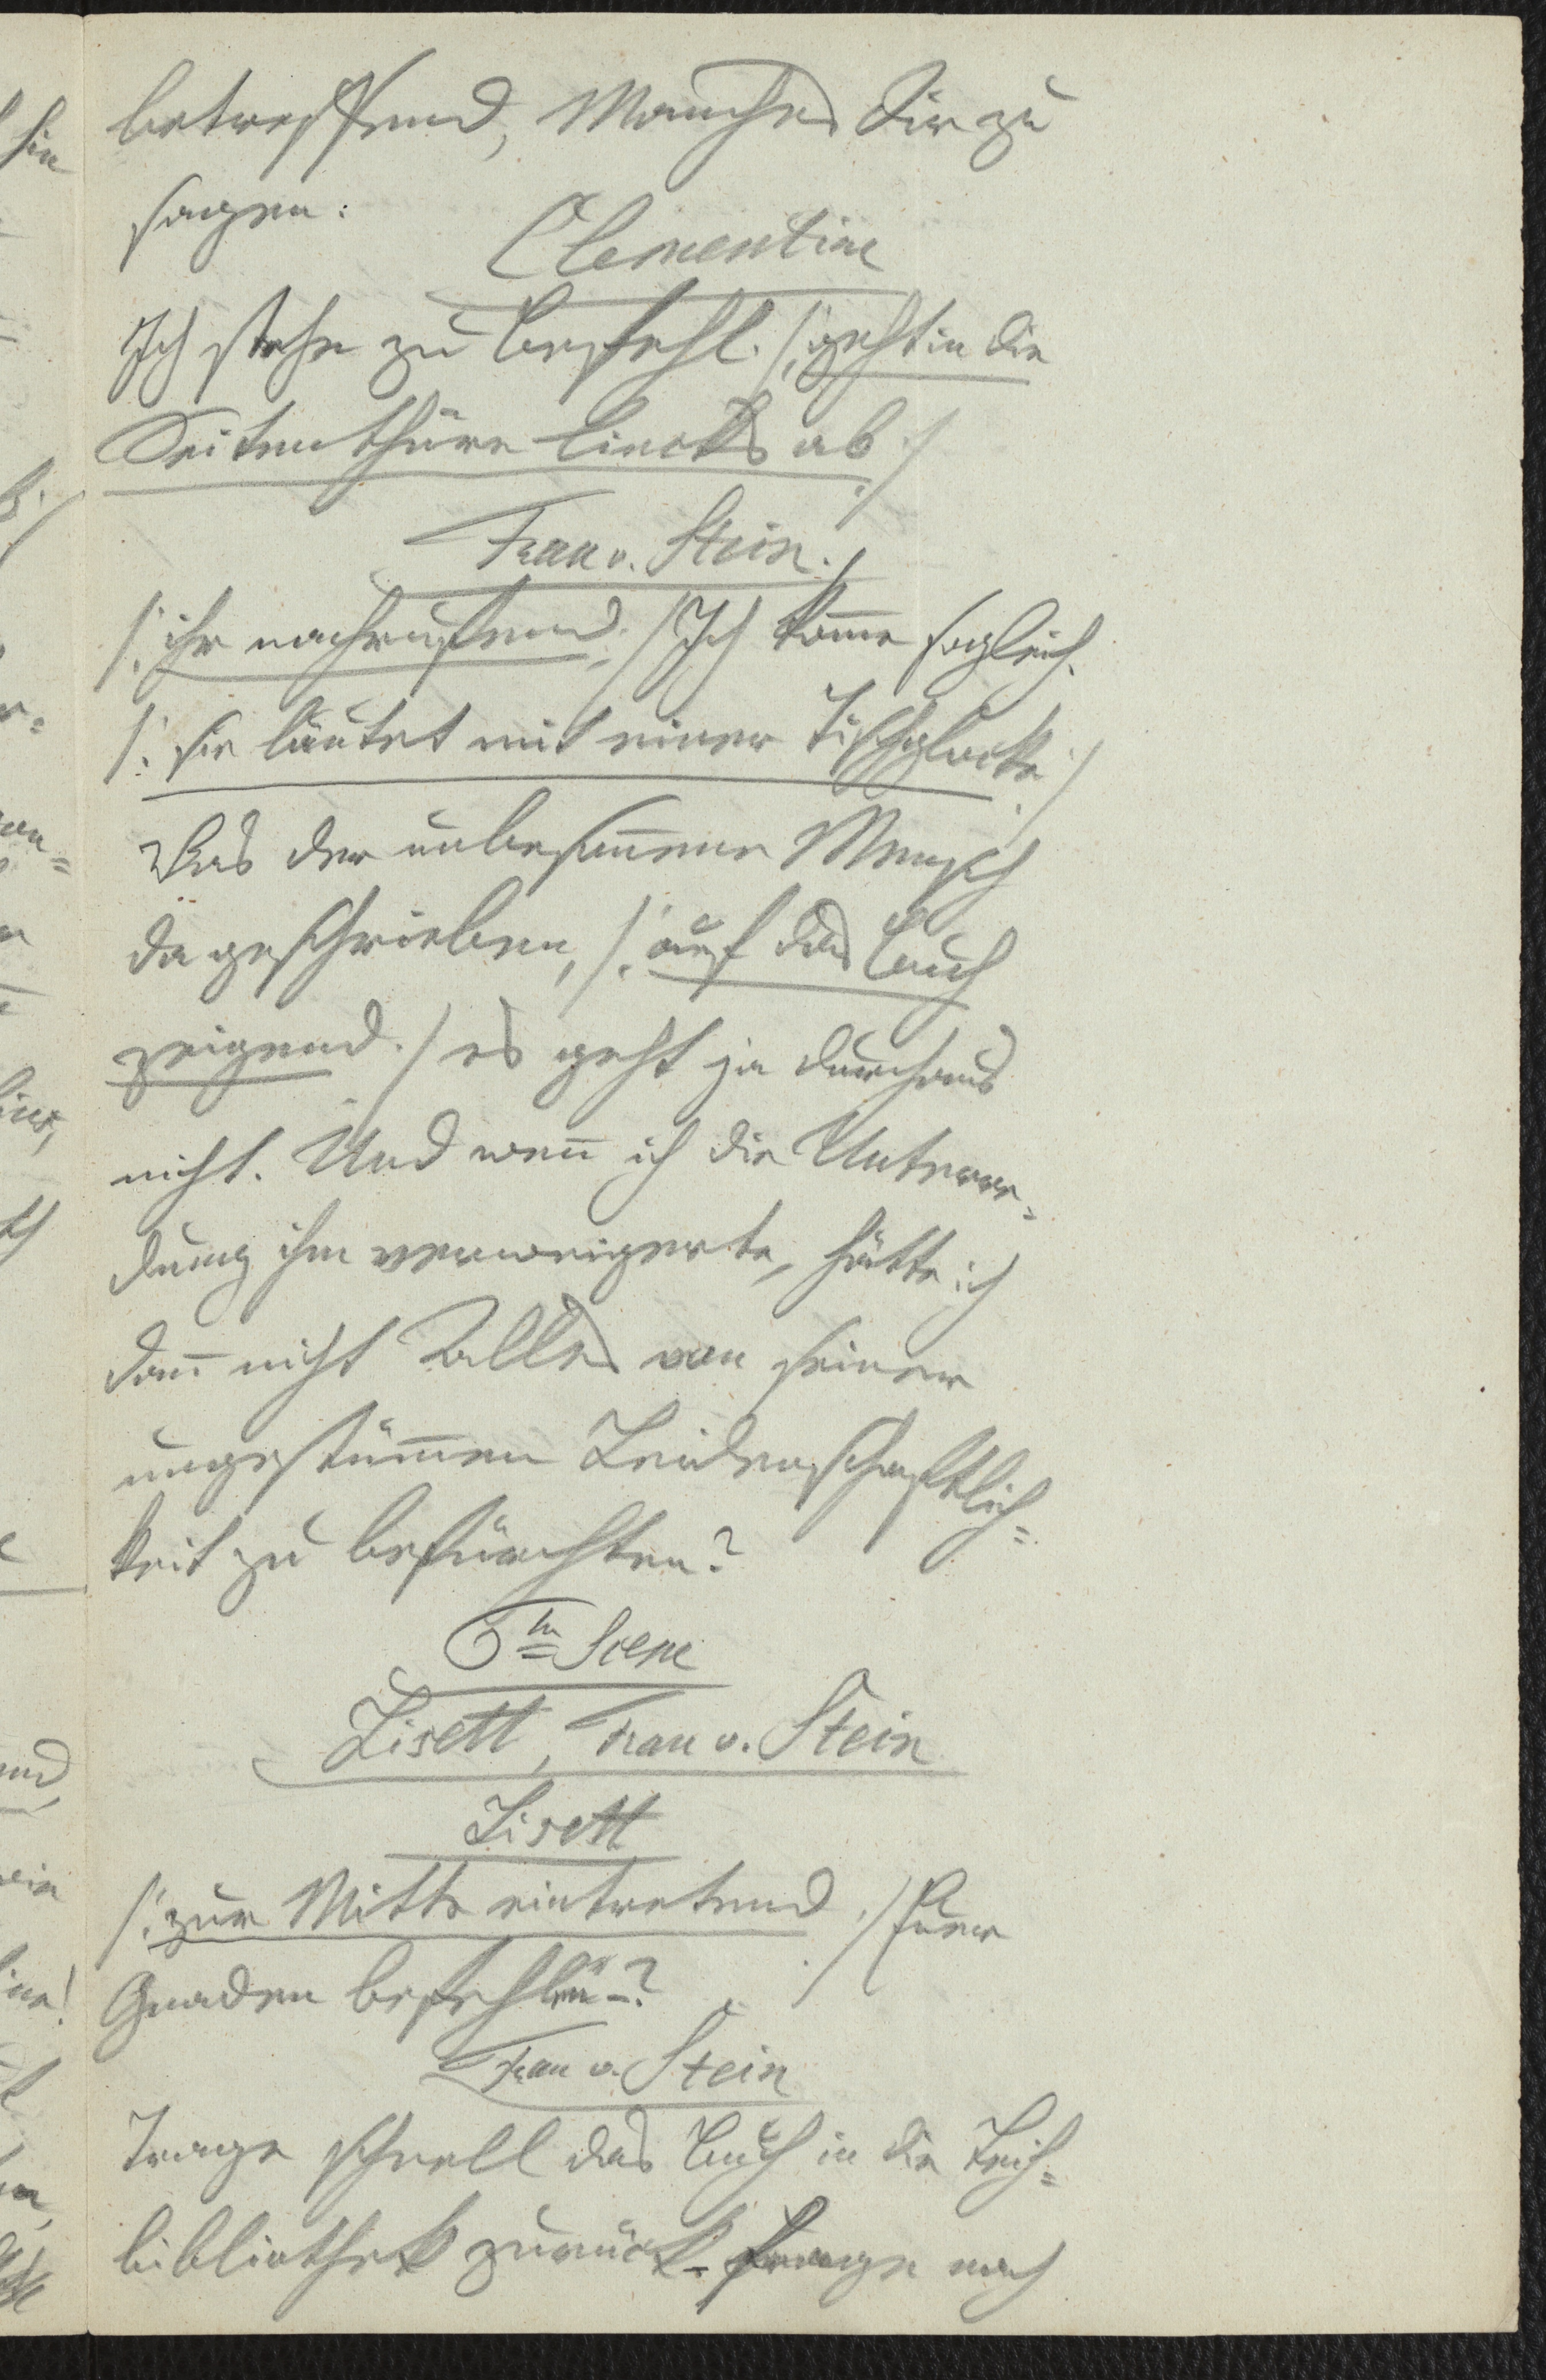 betreffend, Manches Dir zu
sagen.
Clementine
Ich stehe zu Befehl. /: geht in die
Seitenthüre lincks ab :/
Frau v. Stein.
/: ihr nachrufend :/ Ich kom̄e sogleich.
/: sie läutet mit einer Tischglocke :/
Was der unbeson̄ene Mensch
da geschrieben, /: auf das Buch
zeigend :/ es geht ja durchaus
nicht. Und wen̄ ich die Unterre-
dung ihm verweigerte, hätte ich
dan̄ nicht Alles von seiner
ungestüm̄en Leidenschaftlich-
keit zu befürchten?
6te Scene
Lisett, Frau v. Stein
Lisett
/: zur Mitte eintretend :/ Euer
Gnaden befehlen –?
Frau v. Stein
Trage schnell das Buch in die Leih-
bibliothek zurück – frage nach